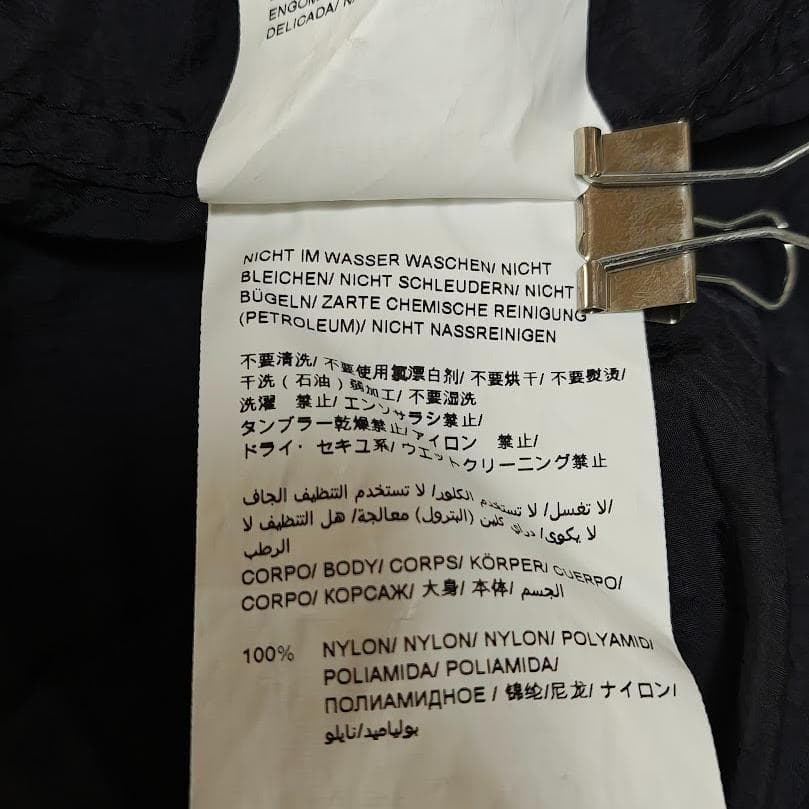 DELICADA/
NICHT IM WASSER WASCHEN/ NICHT
BLEICHEN/ NICHT SCHLEUDERN/ NICHT
BÜGELN/ ZARTE CHEMISCHE REINIGUNG
(PETROLEUM)/ NICHT NASSREINIGEN
不要清洗/ 不要使用氯漂白剂/ 不要烘干/ 不要熨烫/
干洗 ( 石油 ) 弱加工/ 不要湿洗
洗濯 禁止/ エンソサラシ禁止/
タンブラー乾燥禁止/アイロン 禁止/
ドライ・セキユ系/ ウエットクリーニング禁止
/لا تغسل/ لا تستخدم الكلور/ لا تستخدم التنظيف الجاف
لا يكوى/ دراي كلين (البترول) معالجة/ هل التنظيف لا
الرطب
CORPO/ BODY/ CORPS/ KÖRPER/ CUERPO/
CORPO/ КОРСАЖ/ 大身/ 本体/ الجسم
100% NYLON/ NYLON/ NYLON/ POLYAMID/
POLIAMIDA/ POLIAMIDA/
ПОЛИАМИДНОЕ / 锦纶/尼龙/ ナイロン/
بولياميد/نايلو